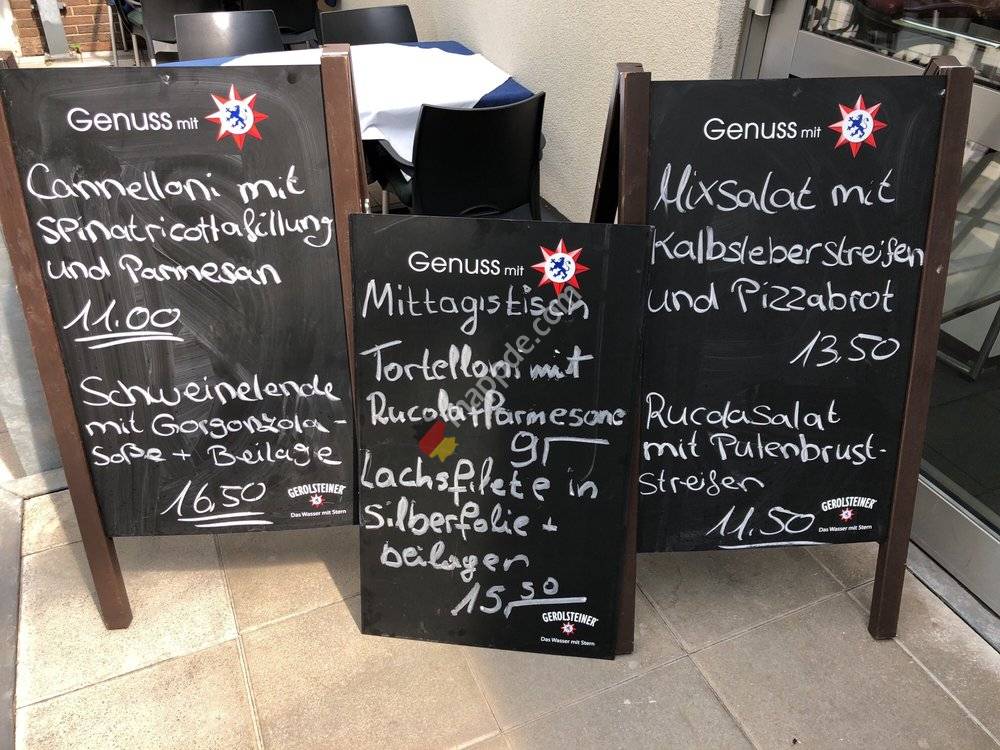 Genuss mit
Cannelloni mit
Spinatricottafüllung
und Parmesan
11.00
Schweinelende
mit Gorgonzola-
Soße + Beilage
16,50
GEROLSTEINER
Das Wasser mit Stern
Genuss mit
Mittagstisch
Tortelloni mit
Rucola+Parmesane
9,-
Lachsfilete in
Silberfolie +
beilagen
15,50
GEROLSTEINER
Das Wasser mit Stern
Genuss mit
Mixsalat mit
Kalbsleberstreifen
und Pizzabrot
13,50
Rucolasalat
mit Putenbrust-
streifen
11,50
GEROLSTEINER
Das Wasser mit Stern
mappnde.com